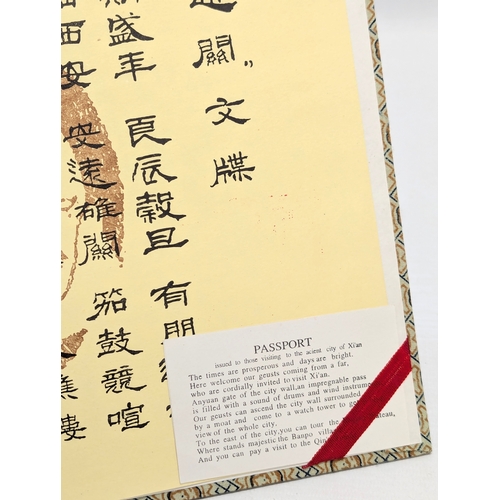 關”文牒
盛年 良辰穀旦 有朋
西安 安遠雄關 笳鼓競喧
PASSPORT
issued to those visiting to the acient city of Xi'an
The times are prosperous and days are bright.
Here welcome our geusts coming from a far,
who are cordially invited to visit Xi'an.
Anyuan gate of the city wall,an impregnable pass
is filled with a sound of drums and wind instrume
Our geusts can ascend the city wall surrounded
by a moat and come to a watch tower to get
view of the whole city.
To the east of the city,you can tour the teau,
Where stands majestic the Banpo vill
And you can pay a visit to the Qin